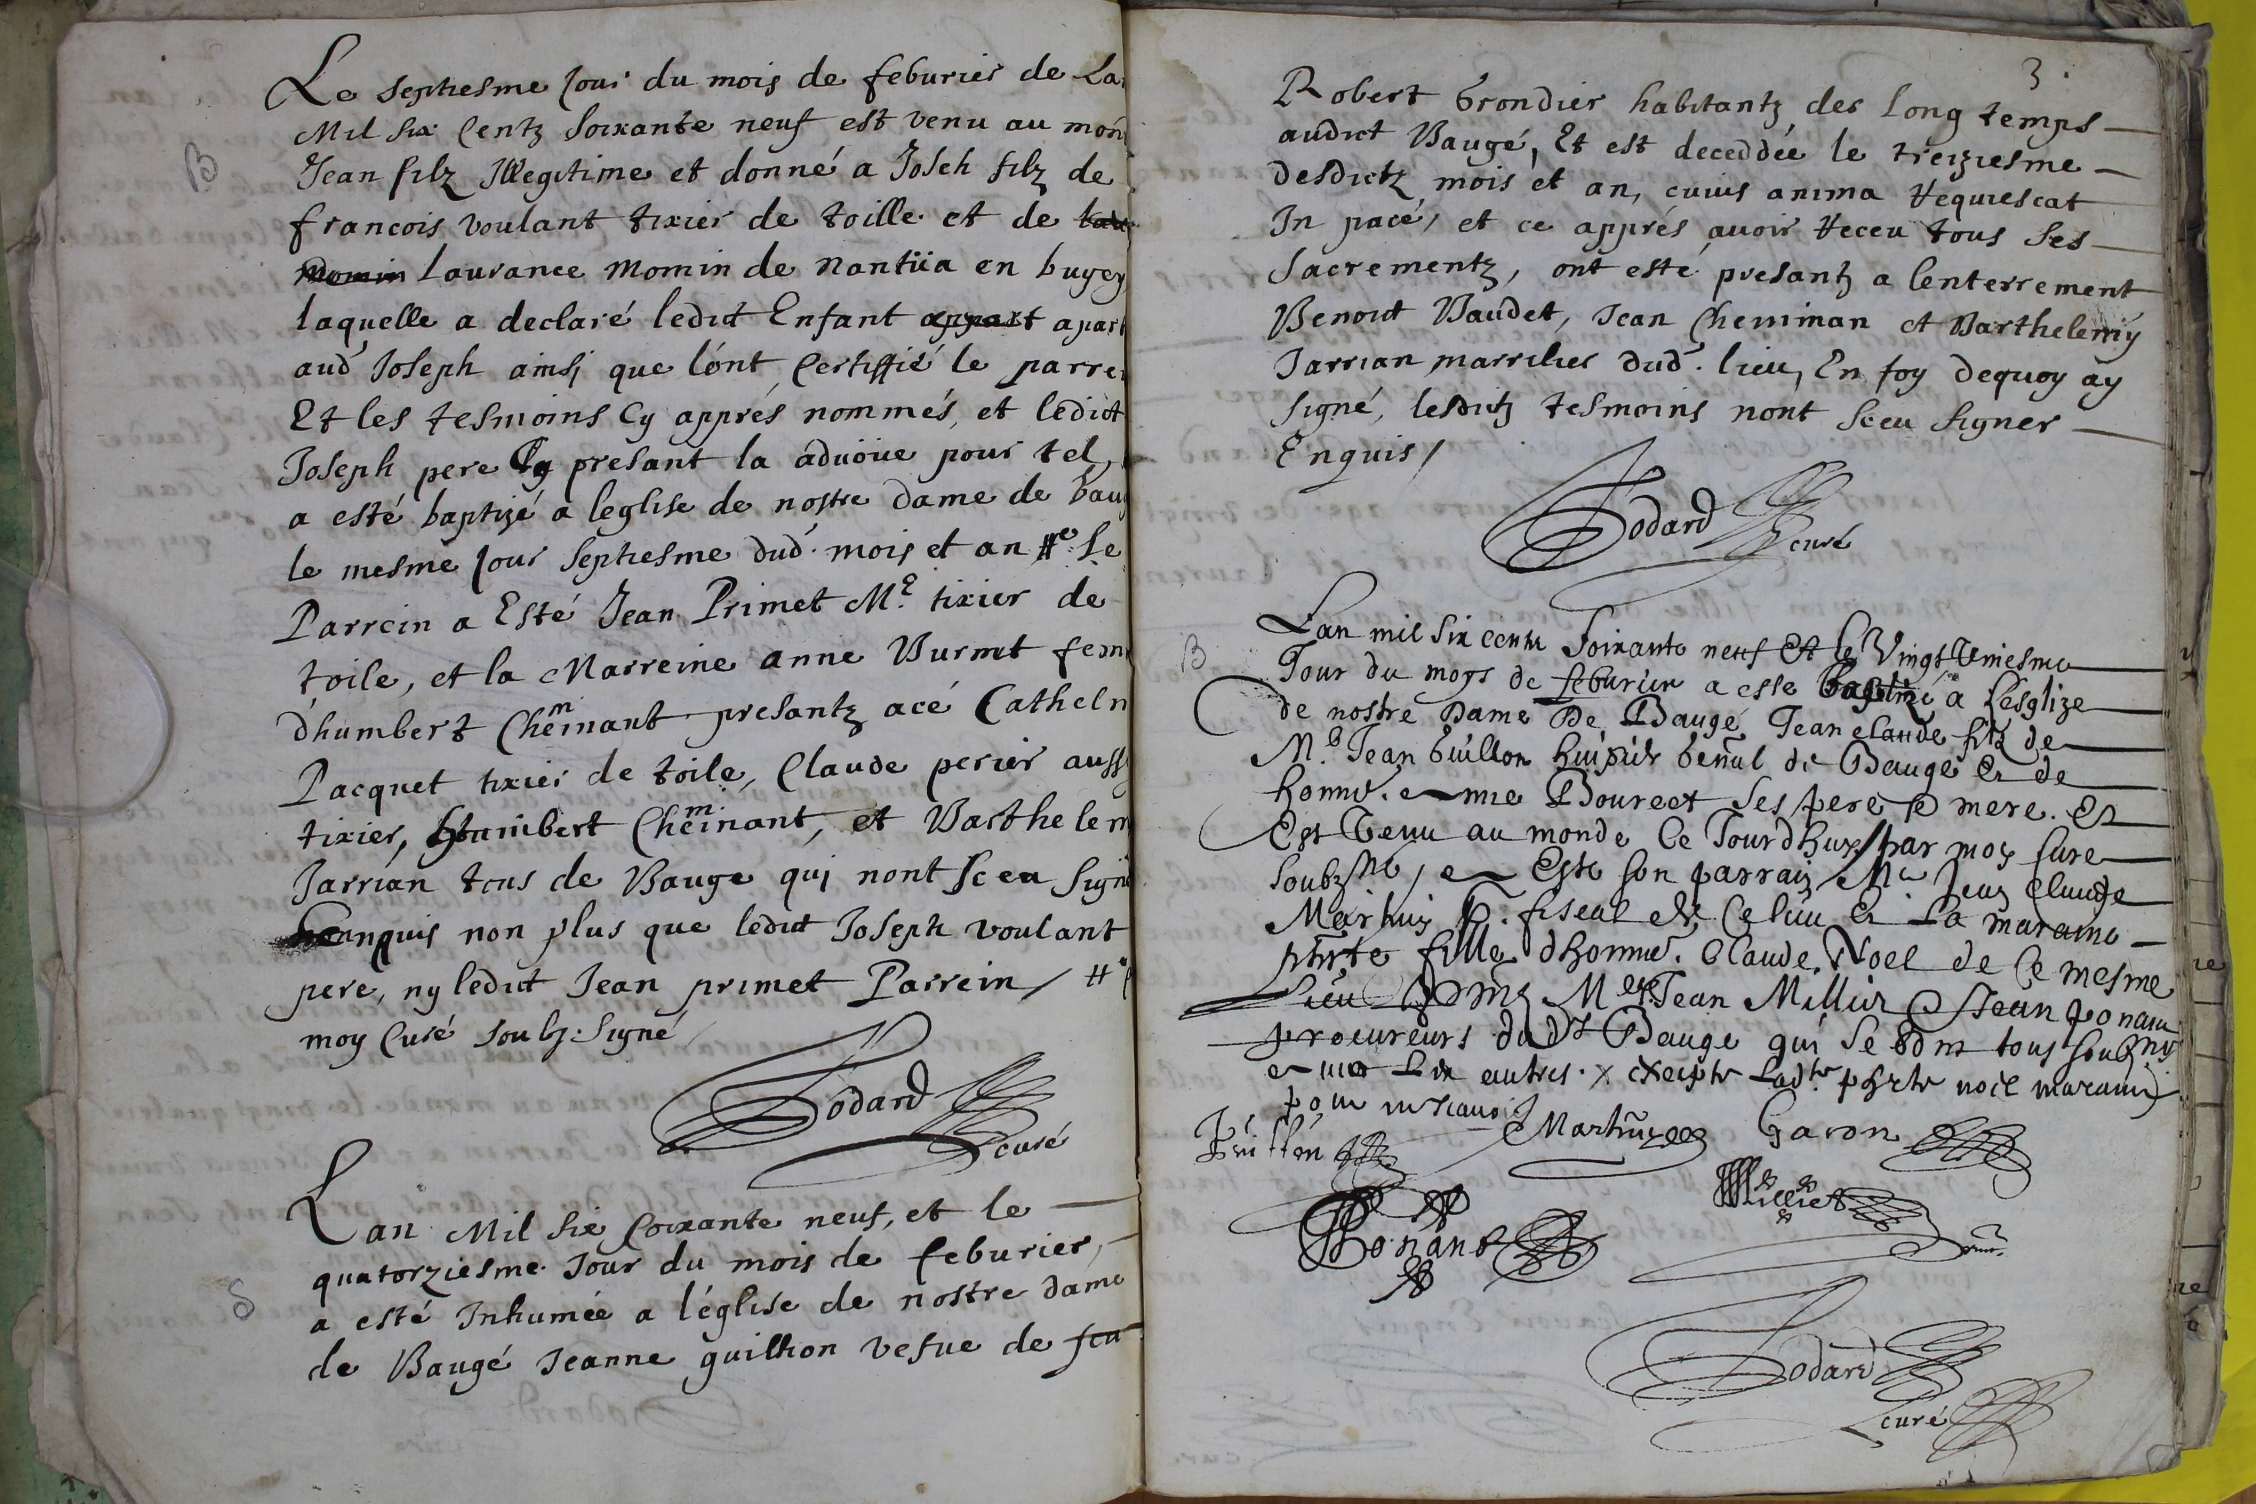 Le septiesme Jour du mois de feburier de La
Mil six Centz soixante neuf est venu au mon
B
Jean filz Illegitime et donné a Joseh filz de
francois voulant tixier de toille et de
Momin Laurance Momin de Nantüa en bugey
laquelle a declaré ledict Enfant appart apart
aud Joseph ainsj que lónt Certiffié le parre
Et les tesmoins Cy apprés nommés, et ledict
Joseph pere Cy presant la aduöue pour tel,
a esté baptizé a leglise de nostre dame de baug
le mesme Jour septiesme dud. mois et an #e Le
Parrein a Esté Jean Primet Me. tixier de
toile, et la Marreine anne Burnet fem
d'humbert Cheminant presantz acé Catheln
Pacquet tixier de toile, Claude perier auss
tixier, humbert Cheminant, et Barthelem
Jarrian tous de Baugé quj nont sceu sign
Enquis non plus que ledict Joseph voulant
pere, ny ledict Jean primet Parrein / #
moy Curé soubz. signé
Godard
curé
Lan Mil six soixante neuf, et le
quatorziesme Jour du mois de feburier,
S
a esté Inhumée a léglise de nostre dame
de Baugé Jeanne guillion vefue de feu
3.
Robert Grondier habitantz des long temps
audict Baugé, Et est deceddée le treiziesme
desdictz mois et an, cuius anima requiescat
In pacé, et ce apprés auoir receu tous ses
sacrementz, ont esté presantz a lenterrement
Benoict Baudet, Jean Cheminan et Barthelemy
Jarrian marrilier dud. lieu, En foy dequoy ay
signé, lesdictz tesmoins nont sceu signer
Enquis /
Godard
curé
Lan mil six centz soixante neuf Et le Vingt Uniesme
B
Jour du moys de feburier a esté Baptizé a Lesglize
de nostre Dame De Baugé Jean claude filz de
Me. Jean Guillon de Baugé Et de
honne. Bourcet ses pere & mere. Et
Est Venu au monde Ce Jourdhuy par moy Cure
soubzné, Esté son parrain Me Jean Claude
Martin p. fiscal de Ce lieu Et La maraine
fille d'honne. Claude Noel de Ce mesme
Lieu Mes Jean Millier Jean ponam
procureurs dudt Baugé qui se sont tous soubzné
Les autres. x excepte Ladte noel maraine
pour
Guillon
Martin
Garon
Ponane
Milliet
Godard
curé